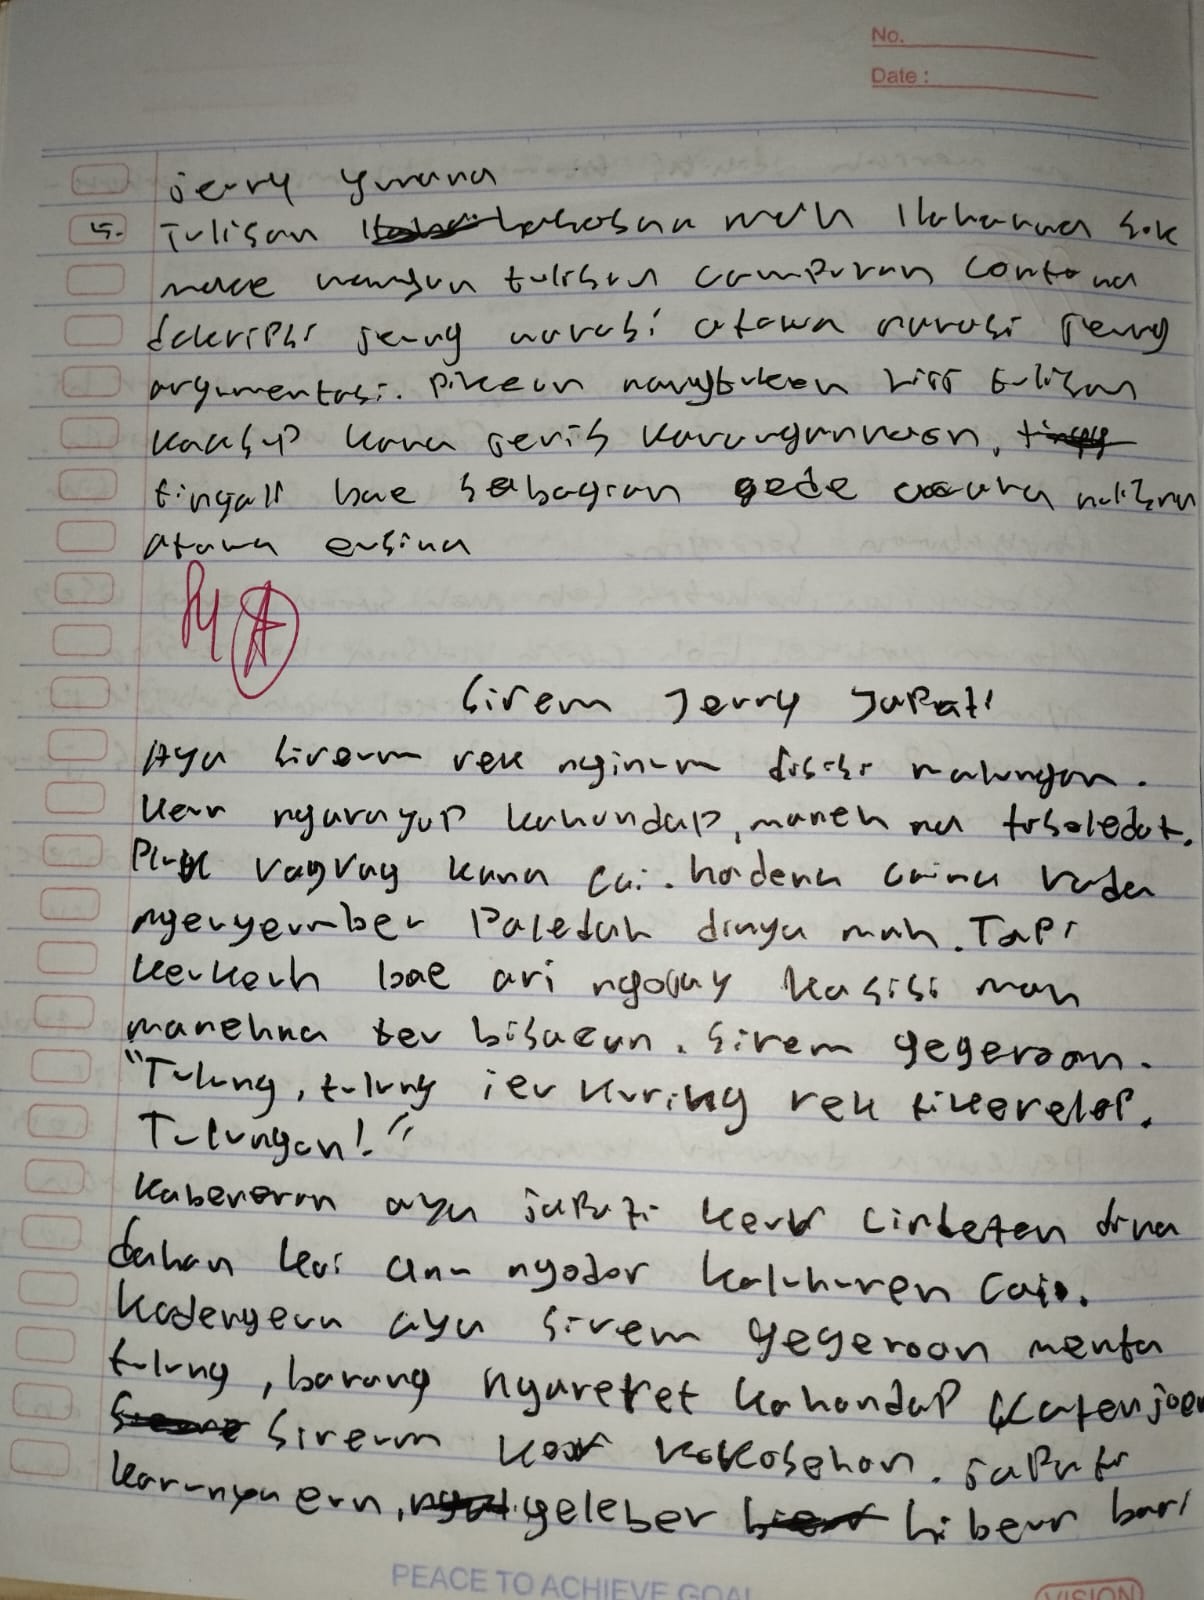 No.
Date :
jerry yunana
5. Tulisan bahasana mah ilaharna sok
make wangun tulisan campuran contona
dekripsi jeung narasi atawa narasi jeung
argumentasi. Pikeun nangtukeun hiji tulisan
kaasup kana jenis karangannaon,
tingali bae sabagian gede cara nulisna
atawa eusina
84 A
Sireum Jerry Japati
Aya sireum rek nginum disisi walungan.
Keur ngarayap kahandap, maneh na tisoledat.
Pluk ragrag kana cai. hadena caina rada
ngeuyeumbeu Paledah dinya mah. Tapi
keukeuh bae ari ngojay kasisi mah
manehna teu bisaeun. Sireum gegeroan.
"Tulung, tulung ieu kuring rek tikerelep.
Tulungan!"
Kabeneran aya japati keur cindeten dina
dahan kai anu nyodor kaluhureun cai.
Kadengeun aya sireum gegeroan menta
tulung, barang ngareret kahandap katenjoeun
Sireum keur kokosehan. Japati
karunyaeun, geleber hibeur bari
PEACE TO ACHIEVE GOAL
VISION